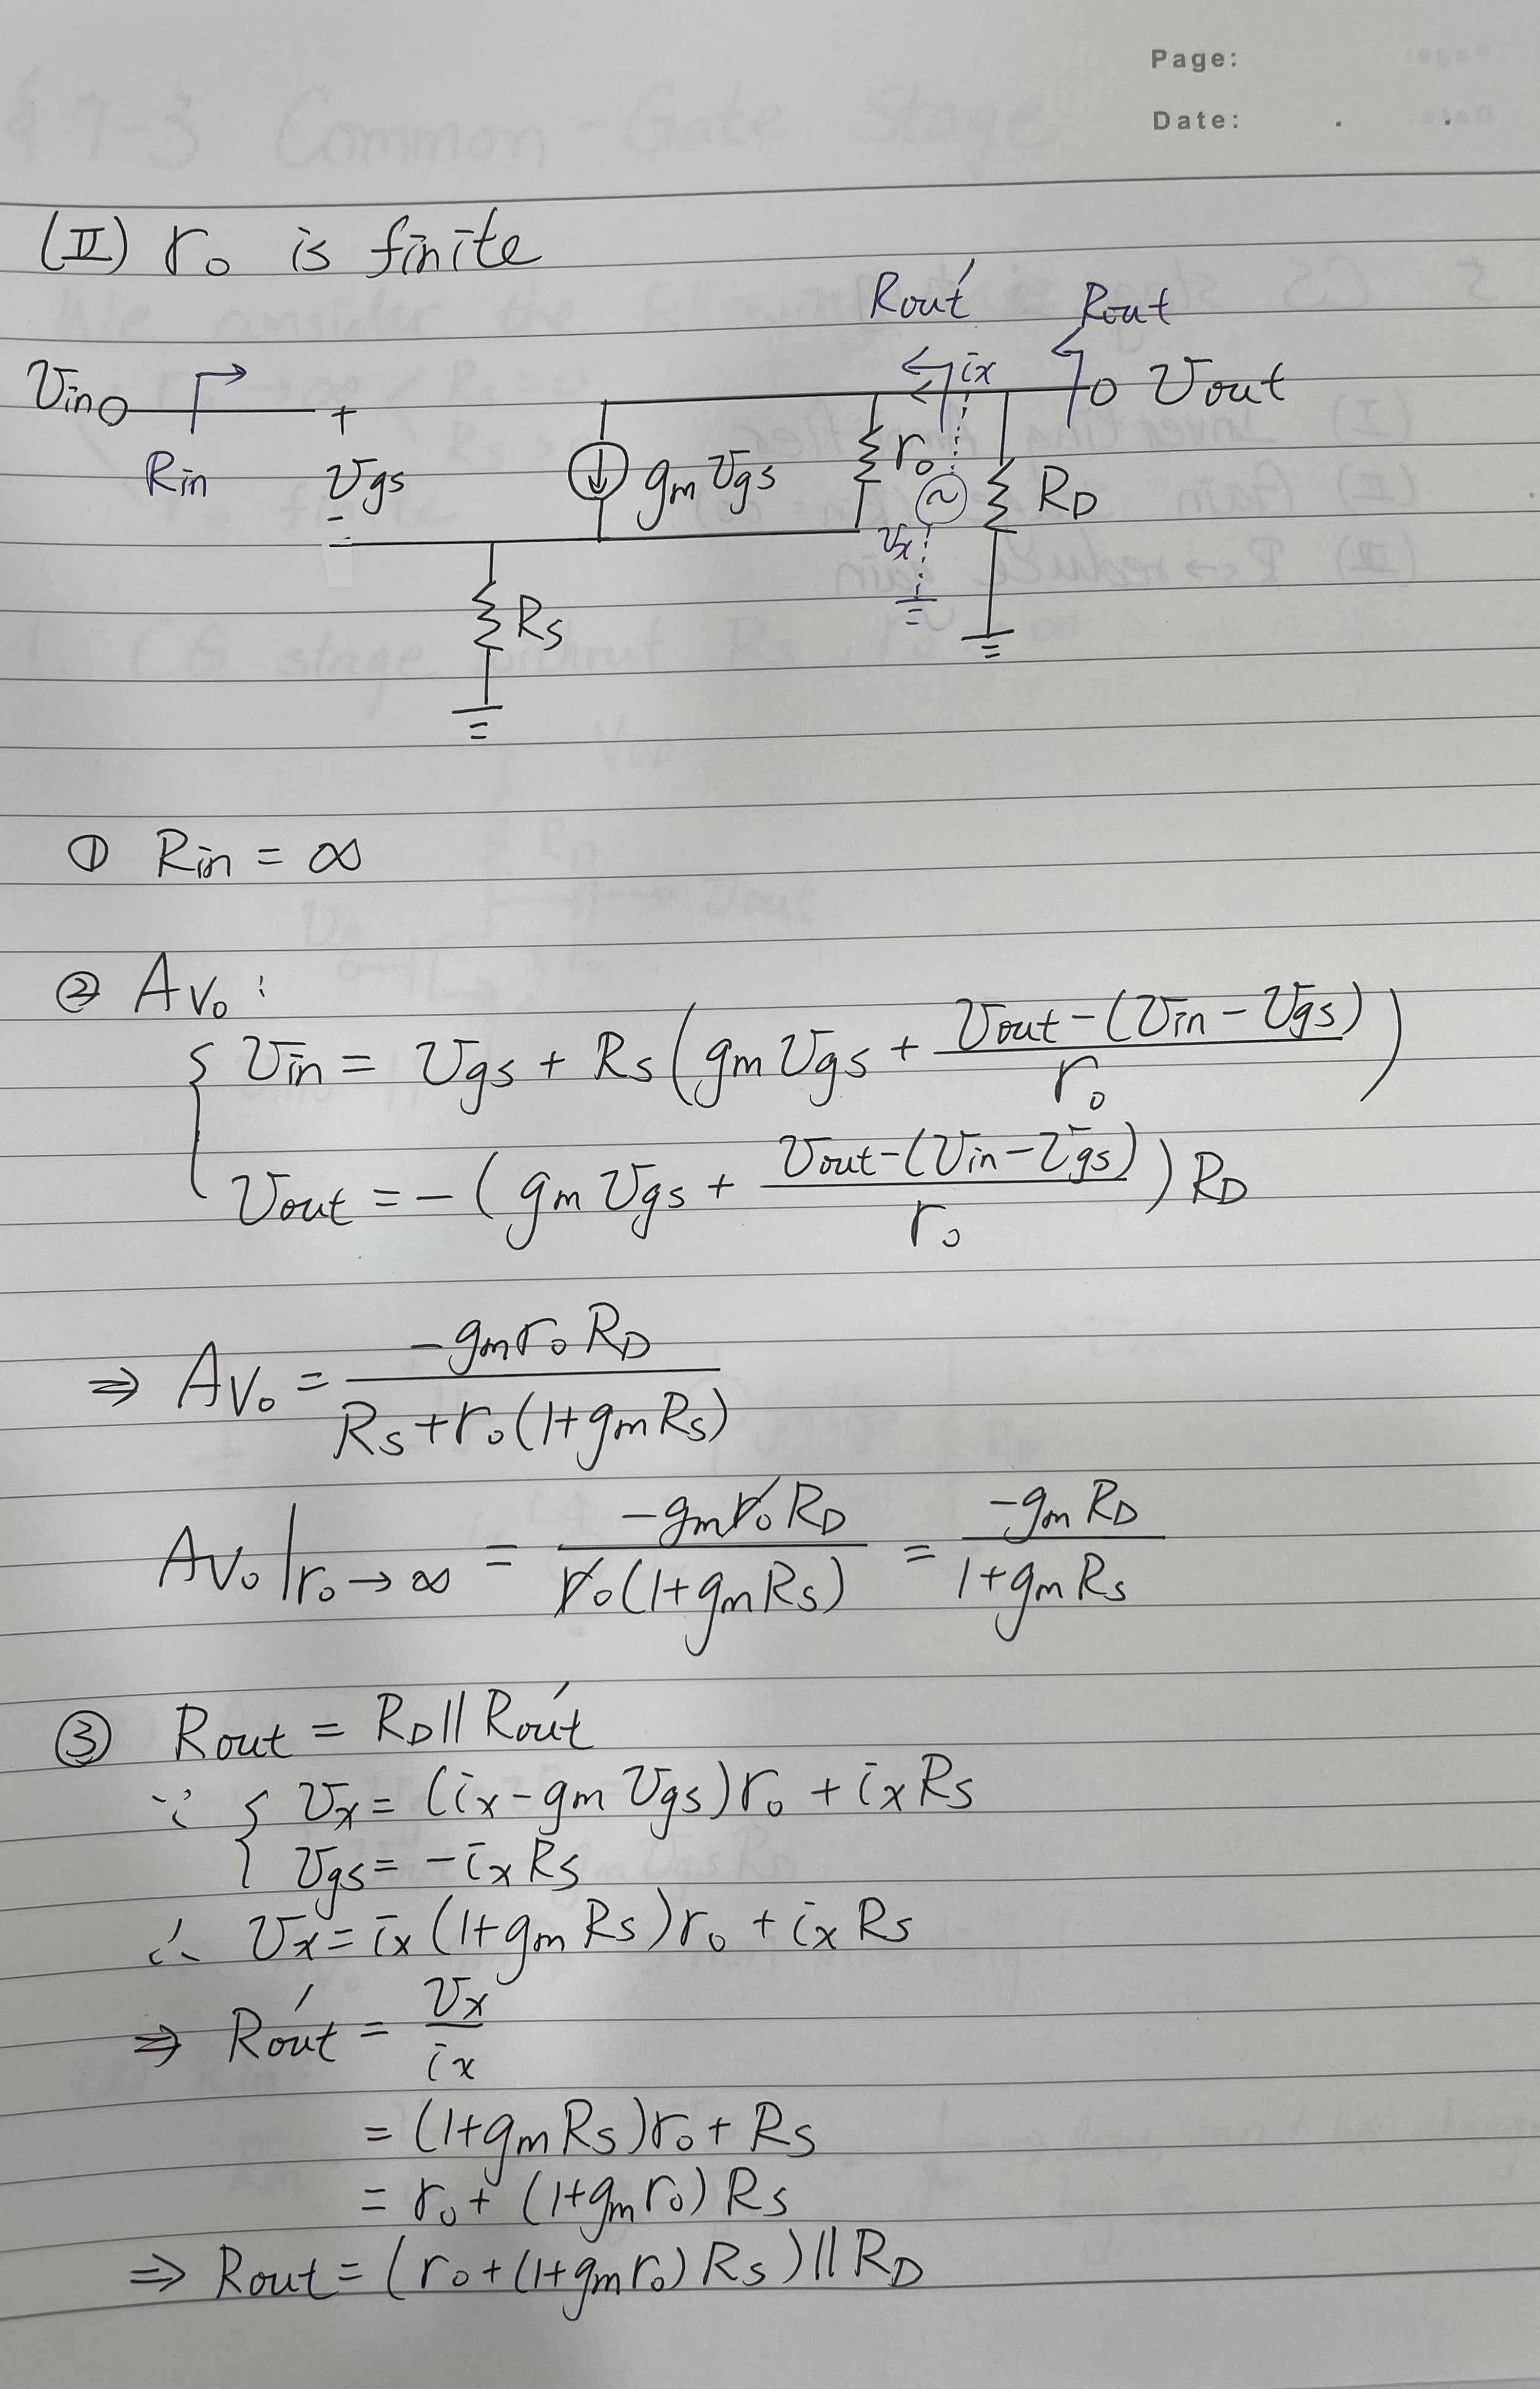 Page:
Date: . .
(II) ro is finite
Rout' Rout
Vin ix Vout
+
Rin Vgs gm Vgs ro RD
-
Vx
Rs
① Rin = ∞
② Avo :
{ Vin = Vgs + Rs ( gm Vgs + (Vout - (Vin - Vgs)) / ro )
Vout = - ( gm Vgs + (Vout - (Vin - Vgs)) / ro ) RD
⇒ Avo = -gm ro RD / (Rs + ro (1 + gm Rs))
Avo | ro → ∞ = -gm ro RD / (ro (1 + gm Rs)) = -gm RD / (1 + gm Rs)
③ Rout = RD || Rout'
∵ { Vx = (ix - gm Vgs) ro + ix Rs
Vgs = - ix Rs
∴ Vx = ix (1 + gm Rs) ro + ix Rs
⇒ Rout' = Vx / ix
= (1 + gm Rs) ro + Rs
= ro + (1 + gm ro) Rs
⇒ Rout = (ro + (1 + gm ro) Rs) || RD